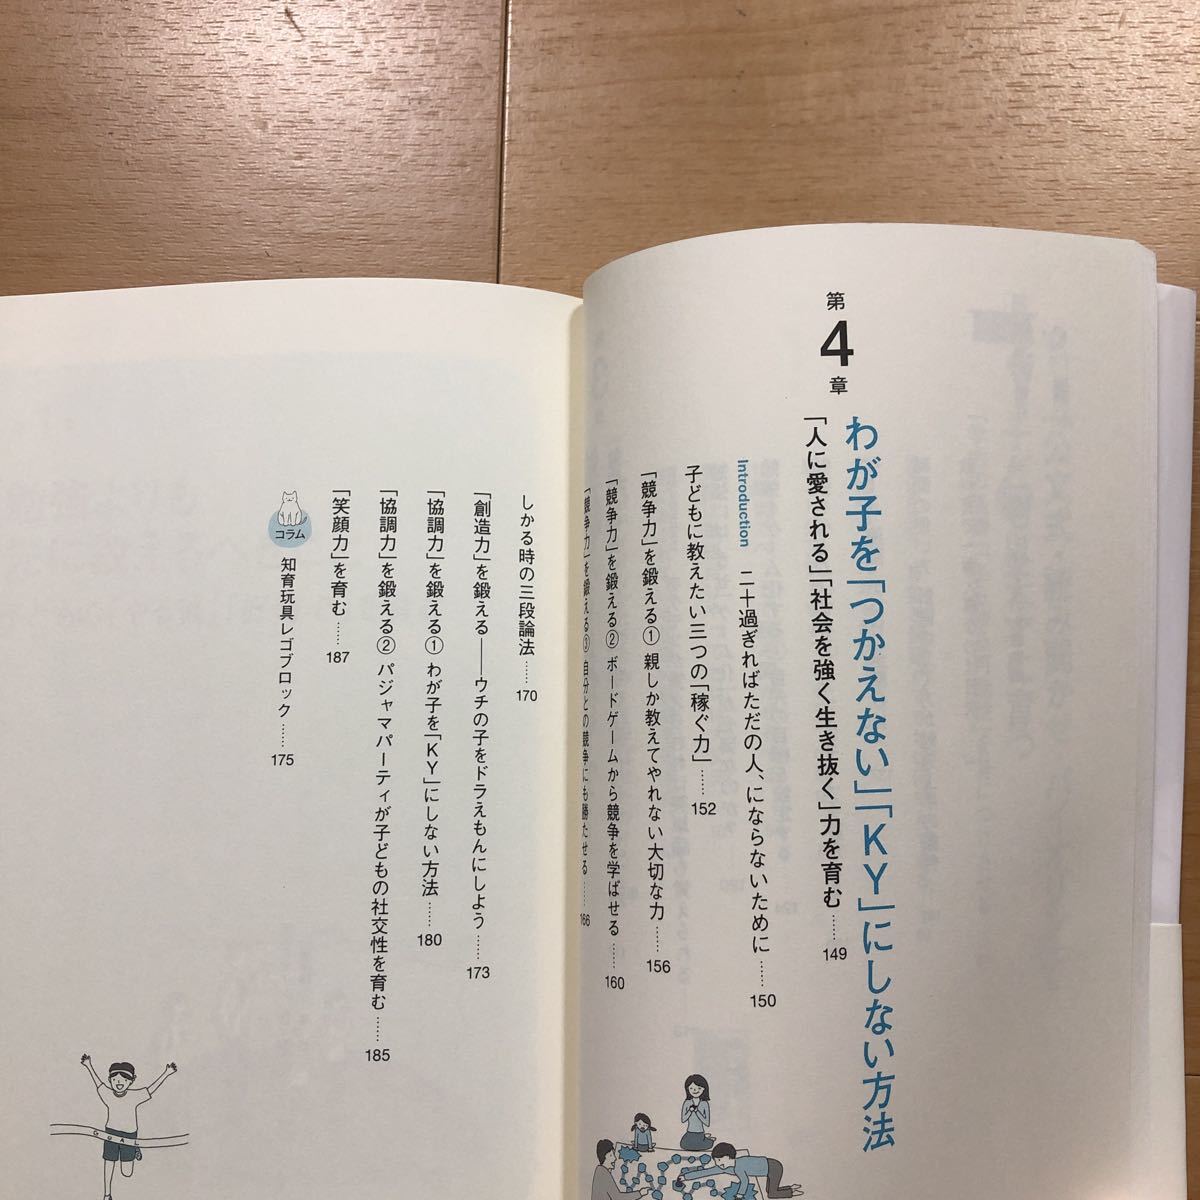 第4章
わが子を「つかえない」「KY」にしない方法
「人に愛される」「社会を強く生き抜く」力を育む……149
Introduction 二十過ぎればただの人、にならないために……150
子どもに教えたい三つの「稼ぐ力」……152
「競争力」を鍛える① 親しか教えてやれない大切な力……156
「競争力」を鍛える② ボードゲームから競争を学ばせる……160
「競争力」を鍛える③ 自分との競争にも勝たせる……166
しかる時の三段論法……170
「創造力」を鍛える――ウチの子をドラえもんにしよう……173
「協調力」を鍛える① わが子を「KY」にしない方法……180
「協調力」を鍛える② パジャマパーティが子どもの社交性を育む……185
「笑顔力」を育む……187
コラム 知育玩具レゴブロック……175
GOAL